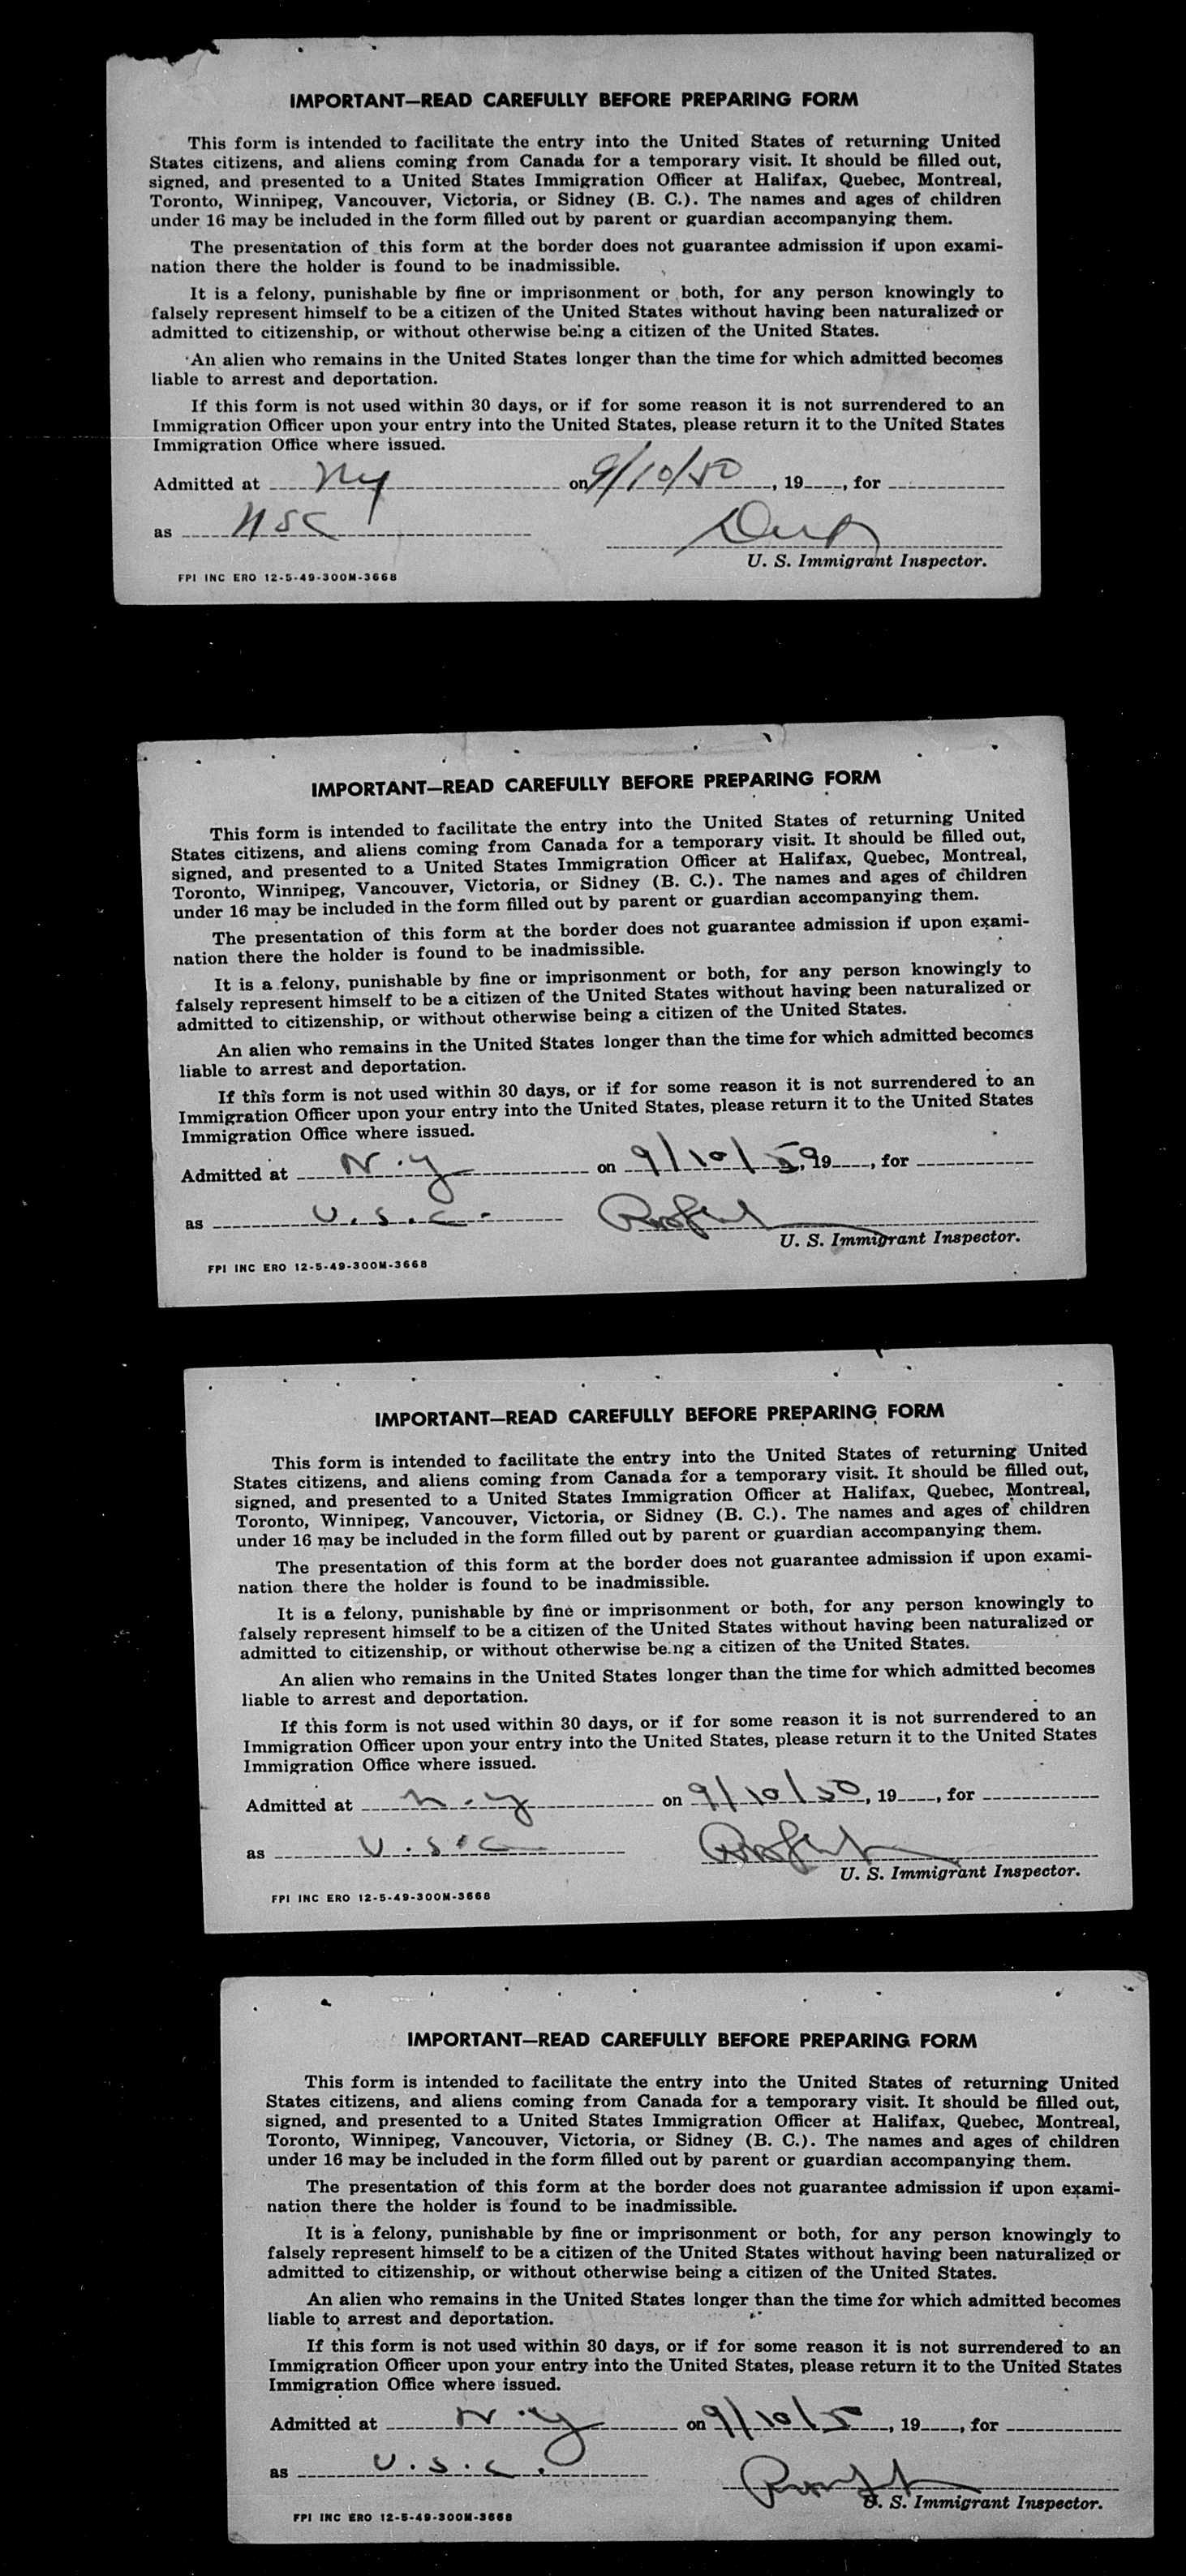 IMPORTANT—READ CAREFULLY BEFORE PREPARING FORM
This form is intended to facilitate the entry into the United States of returning United
States citizens, and aliens coming from Canada for a temporary visit. It should be filled out,
signed, and presented to a United States Immigration Officer at Halifax, Quebec, Montreal,
Toronto, Winnipeg, Vancouver, Victoria, or Sidney (B. C.). The names and ages of children
under 16 may be included in the form filled out by parent or guardian accompanying them.
The presentation of this form at the border does not guarantee admission if upon exami-
nation there the holder is found to be inadmissible.
It is a felony, punishable by fine or imprisonment or both, for any person knowingly to
falsely represent himself to be a citizen of the United States without having been naturalized or
admitted to citizenship, or without otherwise being a citizen of the United States.
An alien who remains in the United States longer than the time for which admitted becomes
liable to arrest and deportation.
If this form is not used within 30 days, or if for some reason it is not surrendered to an
Immigration Officer upon your entry into the United States, please return it to the United States
Immigration Office where issued.
Admitted at NY on 9/10/50, 19____, for
as USC
U. S. Immigrant Inspector.
FPI INC ERO 12-5-49-300M-3668
IMPORTANT—READ CAREFULLY BEFORE PREPARING FORM
This form is intended to facilitate the entry into the United States of returning United
States citizens, and aliens coming from Canada for a temporary visit. It should be filled out,
signed, and presented to a United States Immigration Officer at Halifax, Quebec, Montreal,
Toronto, Winnipeg, Vancouver, Victoria, or Sidney (B. C.). The names and ages of children
under 16 may be included in the form filled out by parent or guardian accompanying them.
The presentation of this form at the border does not guarantee admission if upon exami-
nation there the holder is found to be inadmissible.
It is a felony, punishable by fine or imprisonment or both, for any person knowingly to
falsely represent himself to be a citizen of the United States without having been naturalized or
admitted to citizenship, or without otherwise being a citizen of the United States.
An alien who remains in the United States longer than the time for which admitted becomes
liable to arrest and deportation.
If this form is not used within 30 days, or if for some reason it is not surrendered to an
Immigration Officer upon your entry into the United States, please return it to the United States
Immigration Office where issued.
Admitted at N.Y on 9/10/50, 19____, for
as U.S.C.
U. S. Immigrant Inspector.
FPI INC ERO 12-5-49-300M-3668
IMPORTANT—READ CAREFULLY BEFORE PREPARING FORM
This form is intended to facilitate the entry into the United States of returning United
States citizens, and aliens coming from Canada for a temporary visit. It should be filled out,
signed, and presented to a United States Immigration Officer at Halifax, Quebec, Montreal,
Toronto, Winnipeg, Vancouver, Victoria, or Sidney (B. C.). The names and ages of children
under 16 may be included in the form filled out by parent or guardian accompanying them.
The presentation of this form at the border does not guarantee admission if upon exami-
nation there the holder is found to be inadmissible.
It is a felony, punishable by fine or imprisonment or both, for any person knowingly to
falsely represent himself to be a citizen of the United States without having been naturalized or
admitted to citizenship, or without otherwise being a citizen of the United States.
An alien who remains in the United States longer than the time for which admitted becomes
liable to arrest and deportation.
If this form is not used within 30 days, or if for some reason it is not surrendered to an
Immigration Officer upon your entry into the United States, please return it to the United States
Immigration Office where issued.
Admitted at N.Y on 9/10/50, 19____, for
as U.S.C
U. S. Immigrant Inspector.
FPI INC ERO 12-5-49-300M-3668
IMPORTANT—READ CAREFULLY BEFORE PREPARING FORM
This form is intended to facilitate the entry into the United States of returning United
States citizens, and aliens coming from Canada for a temporary visit. It should be filled out,
signed, and presented to a United States Immigration Officer at Halifax, Quebec, Montreal,
Toronto, Winnipeg, Vancouver, Victoria, or Sidney (B. C.). The names and ages of children
under 16 may be included in the form filled out by parent or guardian accompanying them.
The presentation of this form at the border does not guarantee admission if upon exami-
nation there the holder is found to be inadmissible.
It is a felony, punishable by fine or imprisonment or both, for any person knowingly to
falsely represent himself to be a citizen of the United States without having been naturalized or
admitted to citizenship, or without otherwise being a citizen of the United States.
An alien who remains in the United States longer than the time for which admitted becomes
liable to arrest and deportation.
If this form is not used within 30 days, or if for some reason it is not surrendered to an
Immigration Officer upon your entry into the United States, please return it to the United States
Immigration Office where issued.
Admitted at N.Y on 9/10/50, 19____, for
as U.S.C.
U. S. Immigrant Inspector.
FPI INC ERO 12-5-49-300M-3668